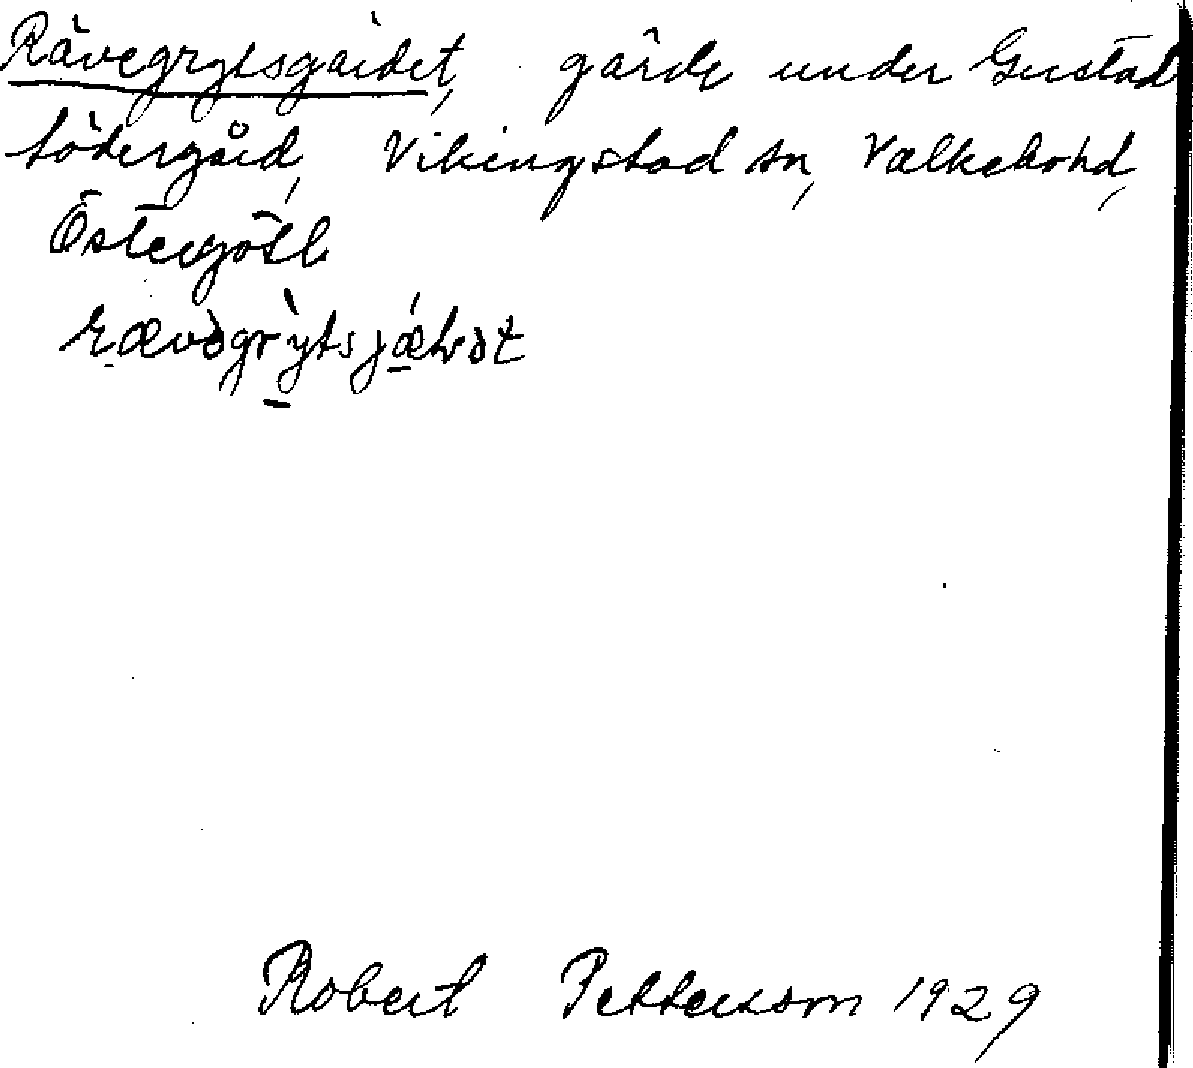 Rävegrytsgärdet, gärde under Gustad
södergård, Vikingstad sn, Valkebo hd,
Östergötl.
Robert Pettersson 1929